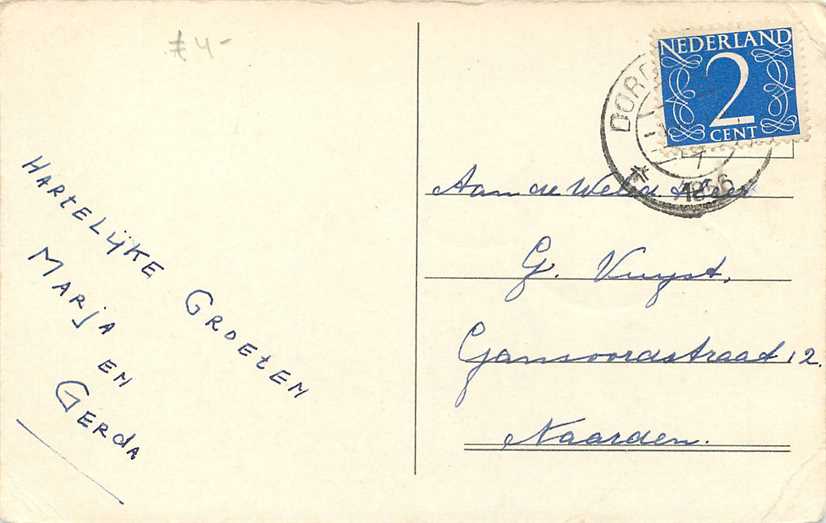 ≠ 4-
NEDERLAND
2
CENT
DORD
1956
HARTELIJKE GROETEN
MARJA
EN
GERDA
Aan de Weled. Heer
G. Vuyst,
Gansoordstraat 12.
Naarden.